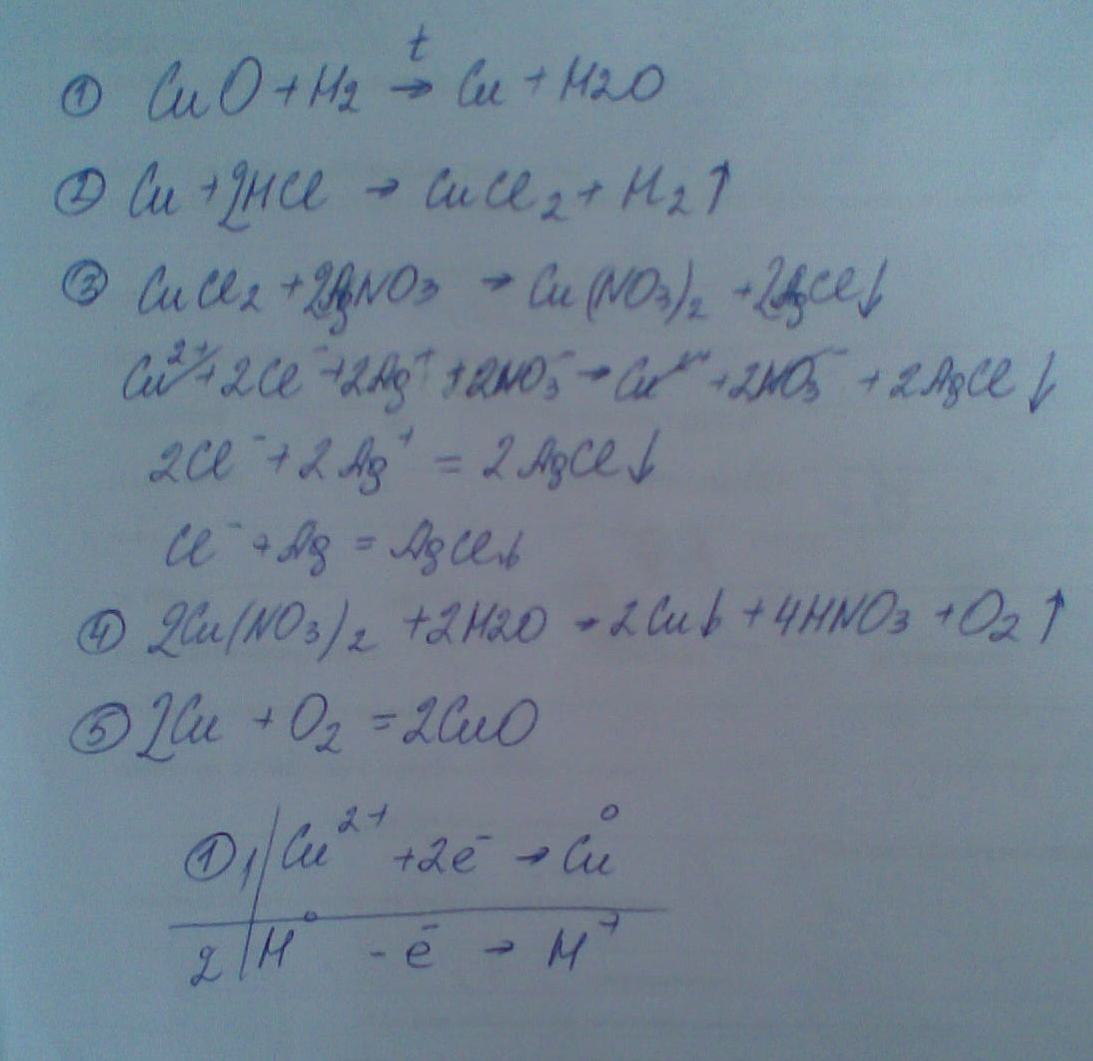 t
① CuO + H2 → Cu + H2O
② Cu + 2HCl → CuCl2 + H2↑
③ CuCl2 + 2AgNO3 → Cu(NO3)2 + 2AgCl↓
Cu2+ + 2Cl- + 2Ag+ + 2NO3- → Cu2+ + 2NO3- + 2AgCl↓
2Cl- + 2Ag+ = 2AgCl↓
Cl- + Ag = AgCl↓
④ 2Cu(NO3)2 + 2H2O → 2Cu↓ + 4HNO3 + O2↑
⑤ 2Cu + O2 = 2CuO
① 1 | Cu2+ + 2ē → Cu0
2 | H0 - ē → H+